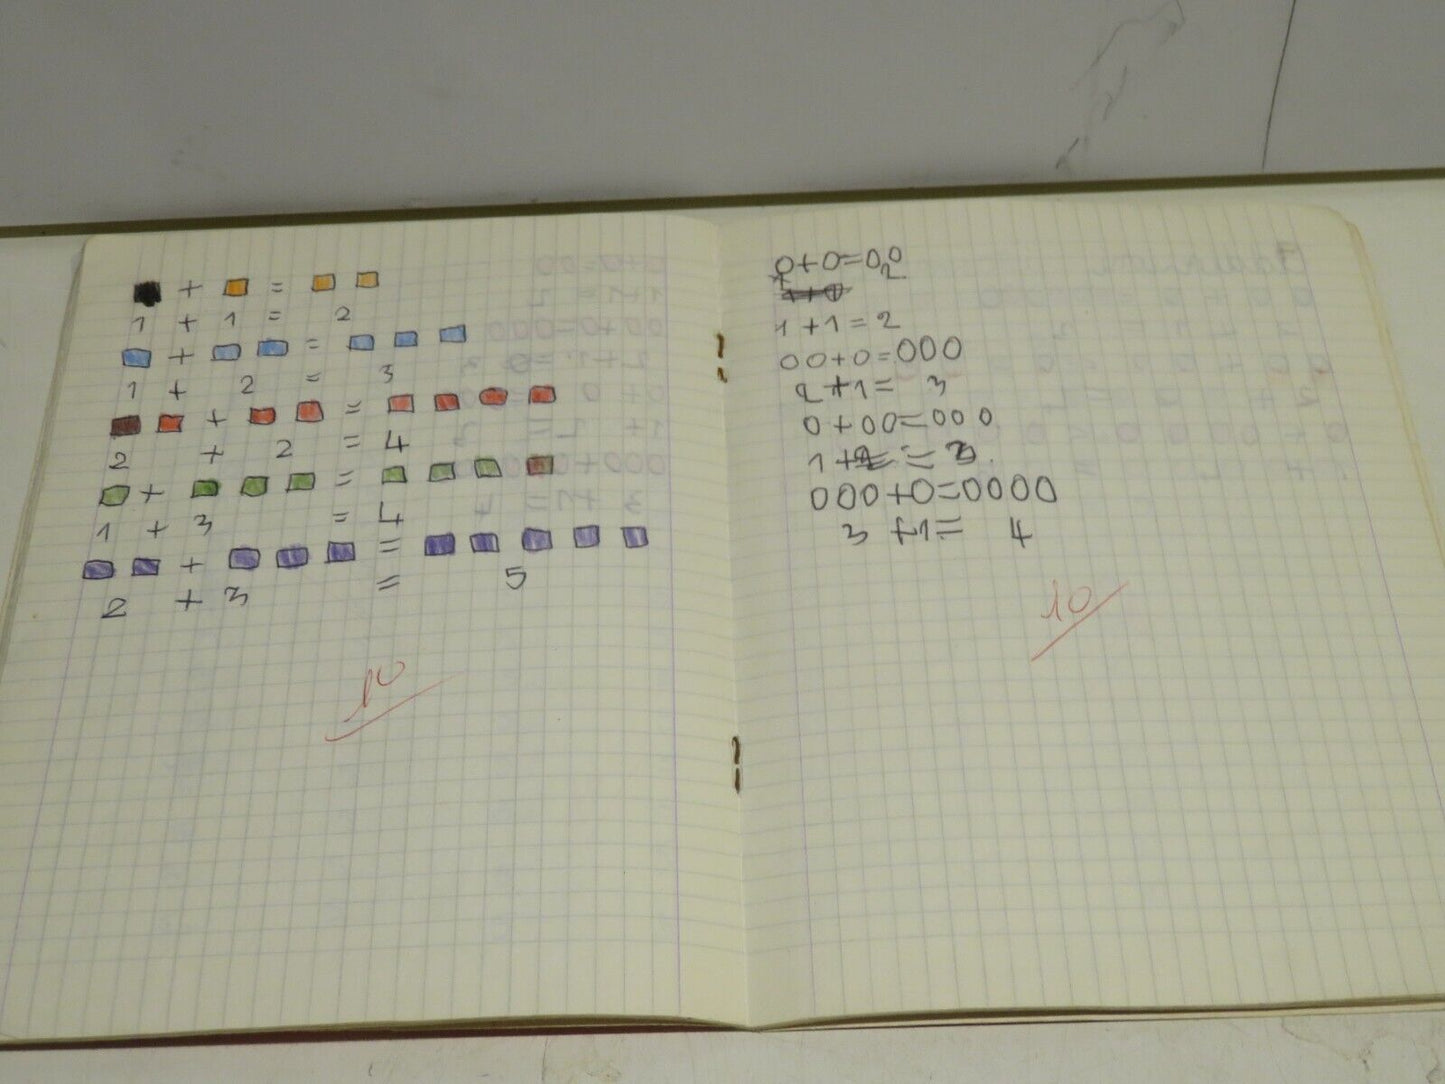 + =
1 + 1 = 2
+ =
1 + 2 = 3
+ =
2 + 2 = 4
+ =
1 + 3 = 4
+ =
2 + 3 = 5
10
0+0=00
1+1=2
00+0=000
2+1= 3
0+00=000
000+0=0000
3 +1= 4
10